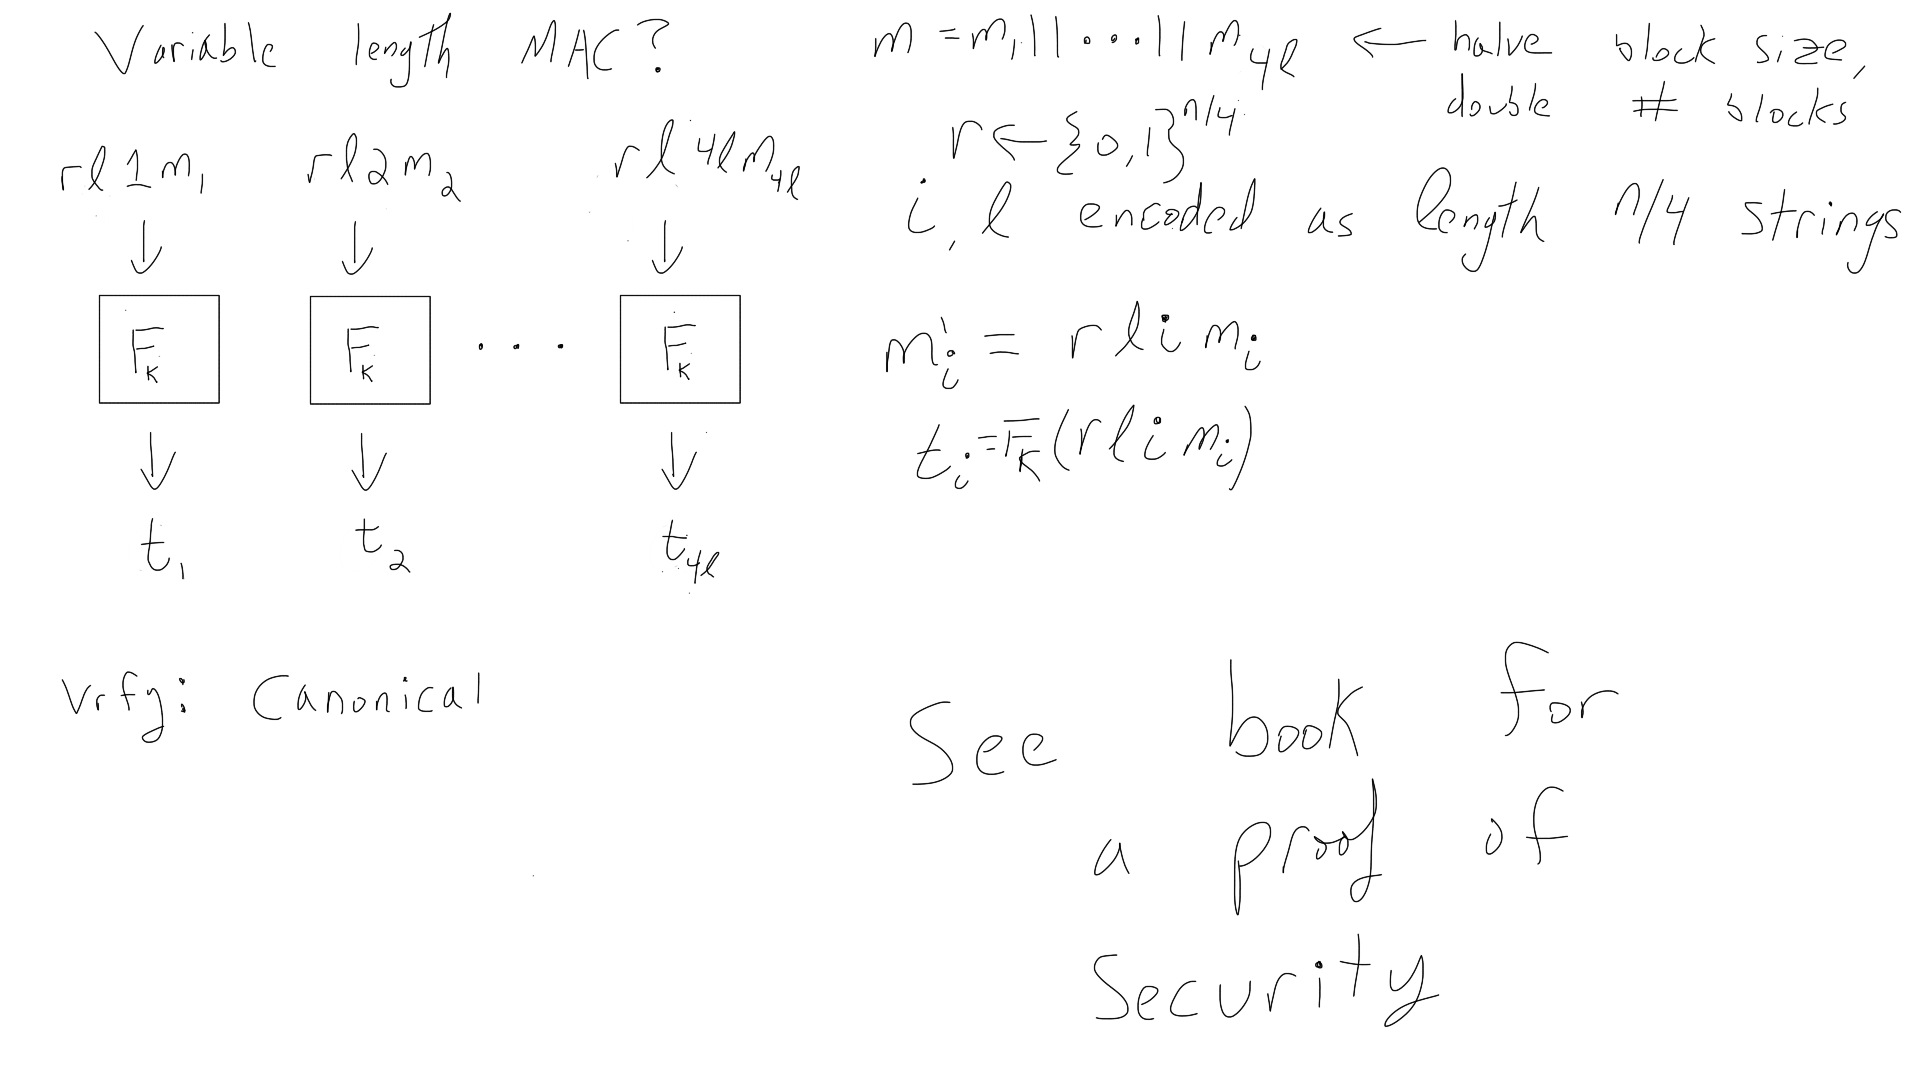 Variable length MAC?
rl1m₁ rl2m₂ rl4lm₄ₗ
↓ ↓ ↓
Fₖ Fₖ . . . Fₖ
↓ ↓ ↓
t₁ t₂ t₄ₗ
Vrfy: Canonical
m = m₁||...||m₄ₗ ← halve block size,
double # blocks
r ← {0,1}^{n/4}
i, l encoded as length n/4 strings
m'ᵢ = r l i mᵢ
tᵢ = Fₖ(r l i mᵢ)
See book for
a proof of
Security